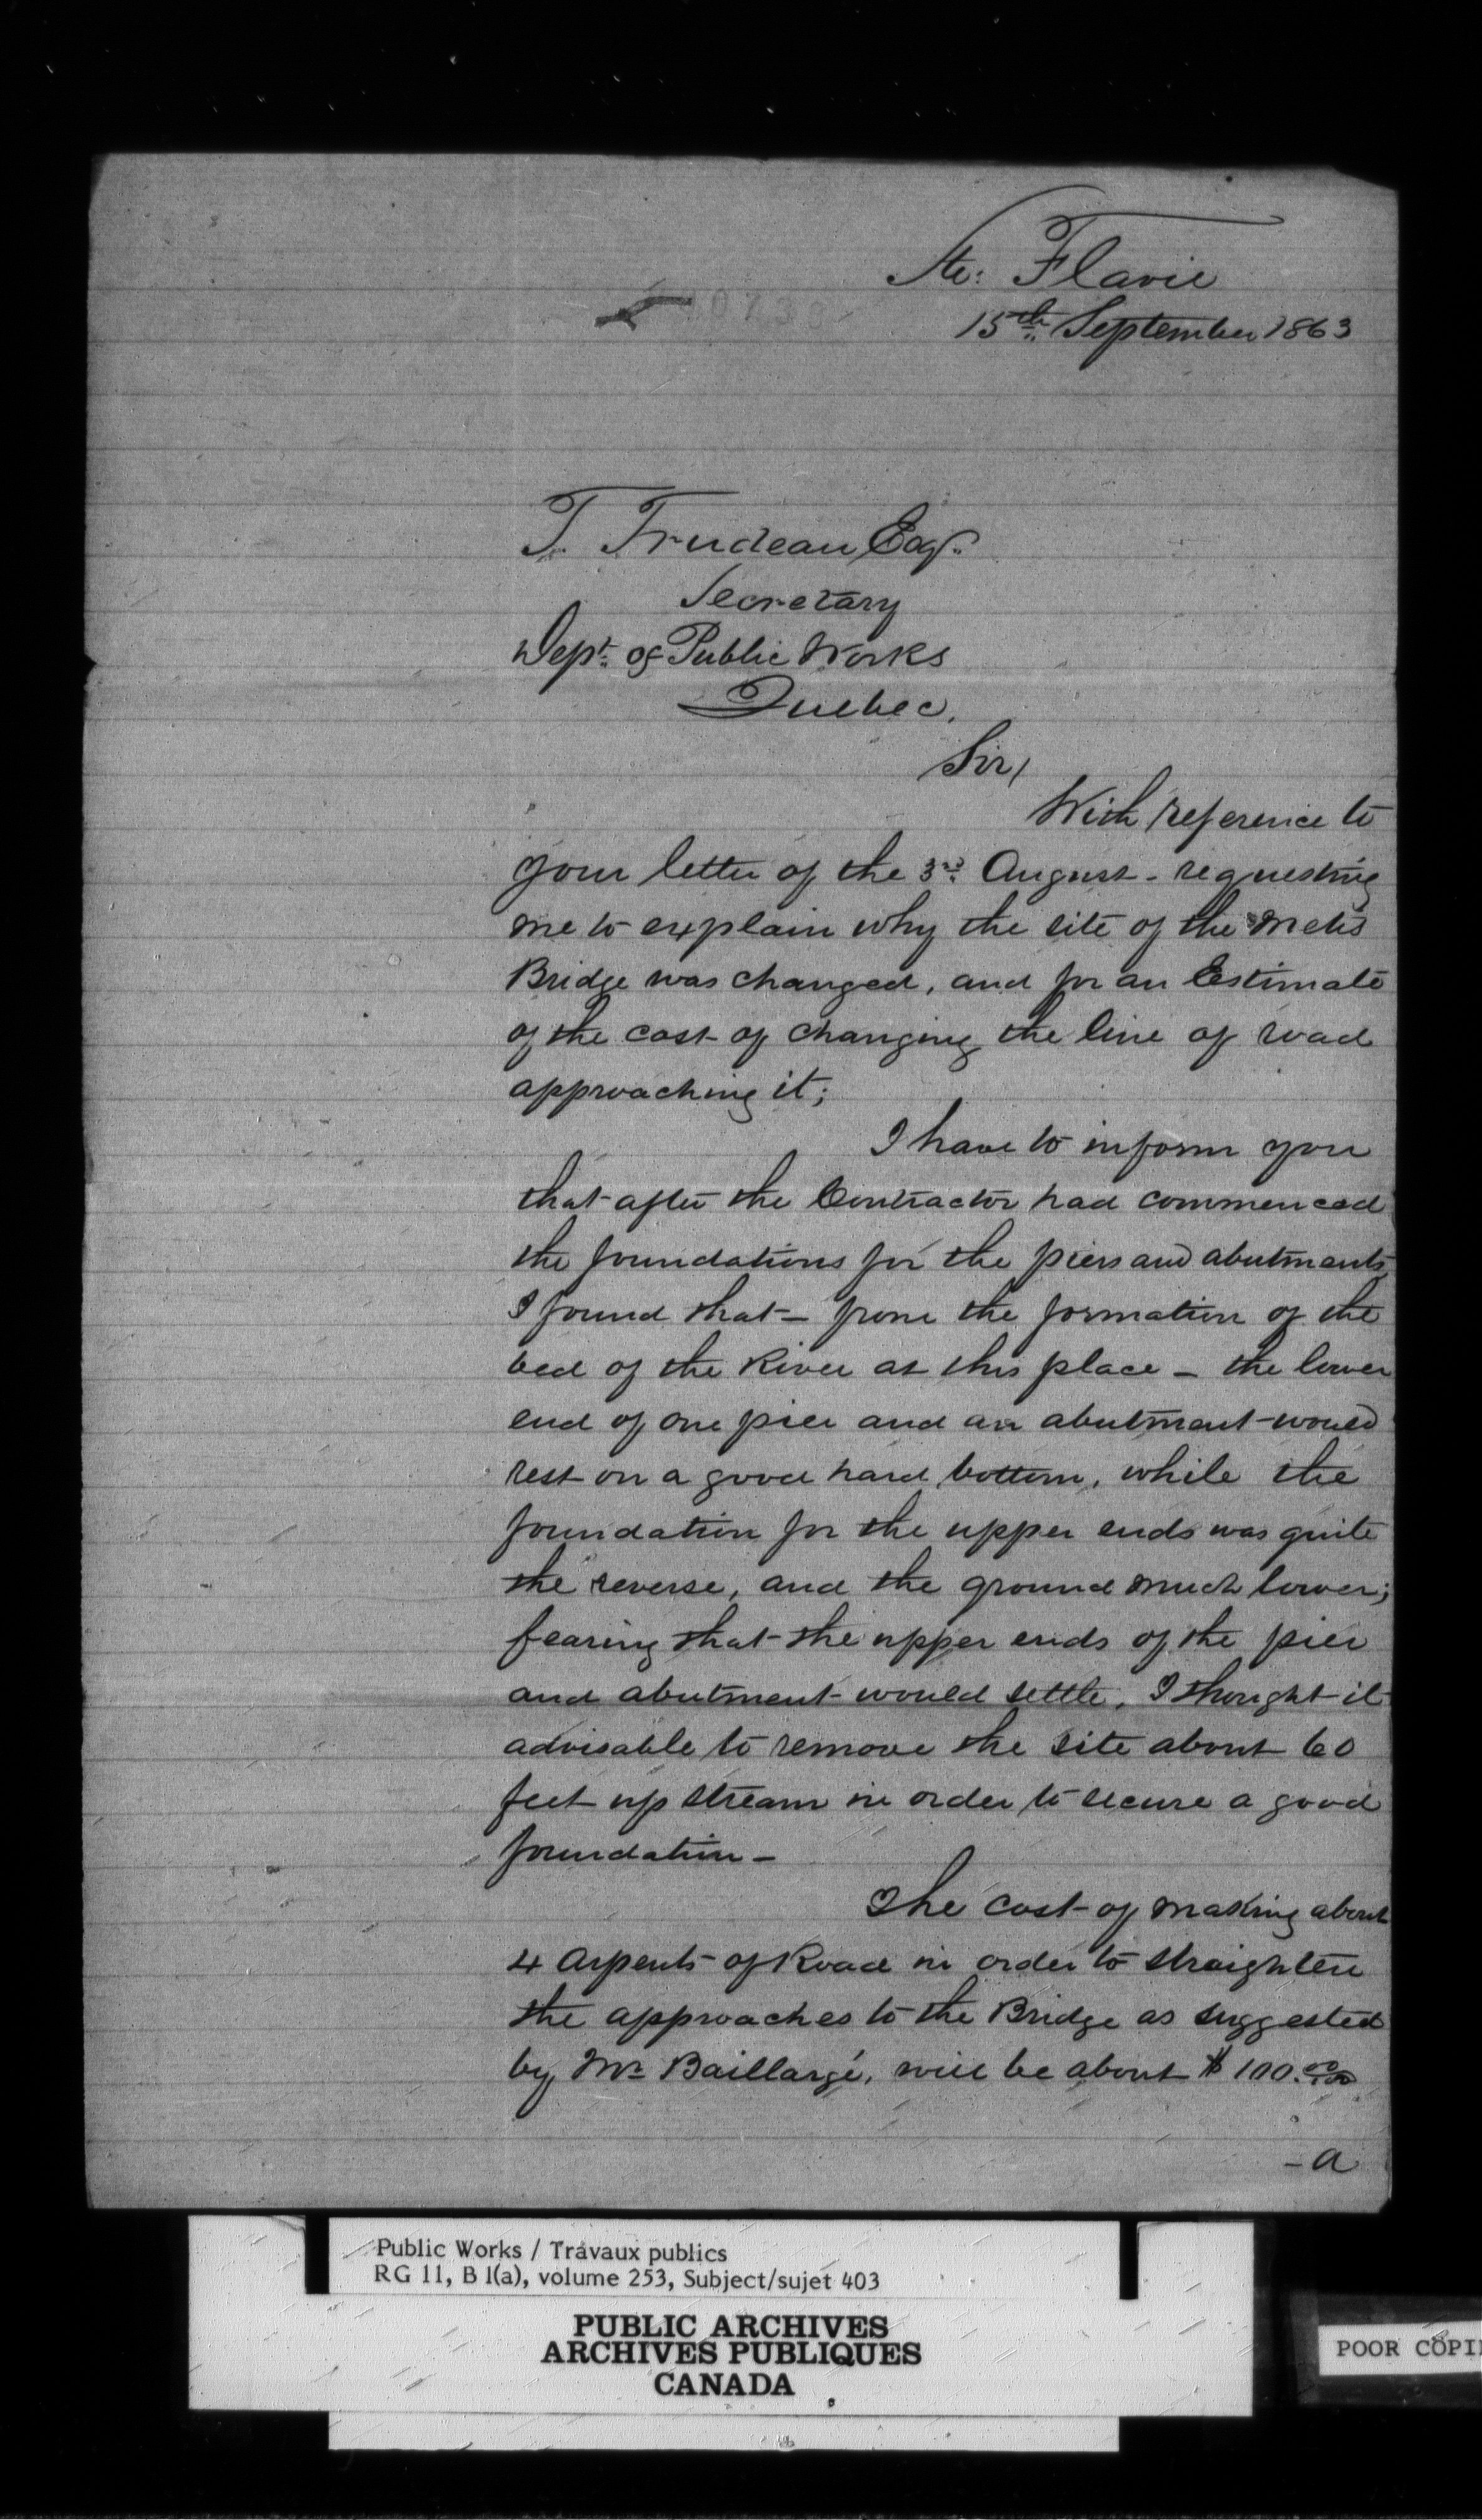 Ste: Flavie
15th September 1863
T. Trudeau Esqr.
Secretary
Dept. of Public Works
Quebec.
Sir,
With reference to
your letter of the 3rd. August - requesting
me to explain why the site of the Metis
Bridge was changed, and for an Estimate
of the cost of changing the line of road
approaching it;
I have to inform you
that after the Contractor had commenced
the foundations for the piers and abutments
I found that - from the formation of the
bed of the River at this place - the lower
end of one pier and an abutment would
rest on a good hard bottom, while the
foundation for the upper ends was quite
the reverse, and the ground much lower;
fearing that the upper ends of the pier
and abutment would settle, I thought it
advisable to remove the site about 60
feet up stream in order to secure a good
foundation -
The cost of making about
4 Arpents of Road in order to straighten
the approaches to the Bridge as suggested
by Mr Baillargé, will be about $100.00/100
- a
Public Works / Travaux publics
RG 11, B 1(a), volume 253, Subject/sujet 403
PUBLIC ARCHIVES
ARCHIVES PUBLIQUES
CANADA
POOR COPI